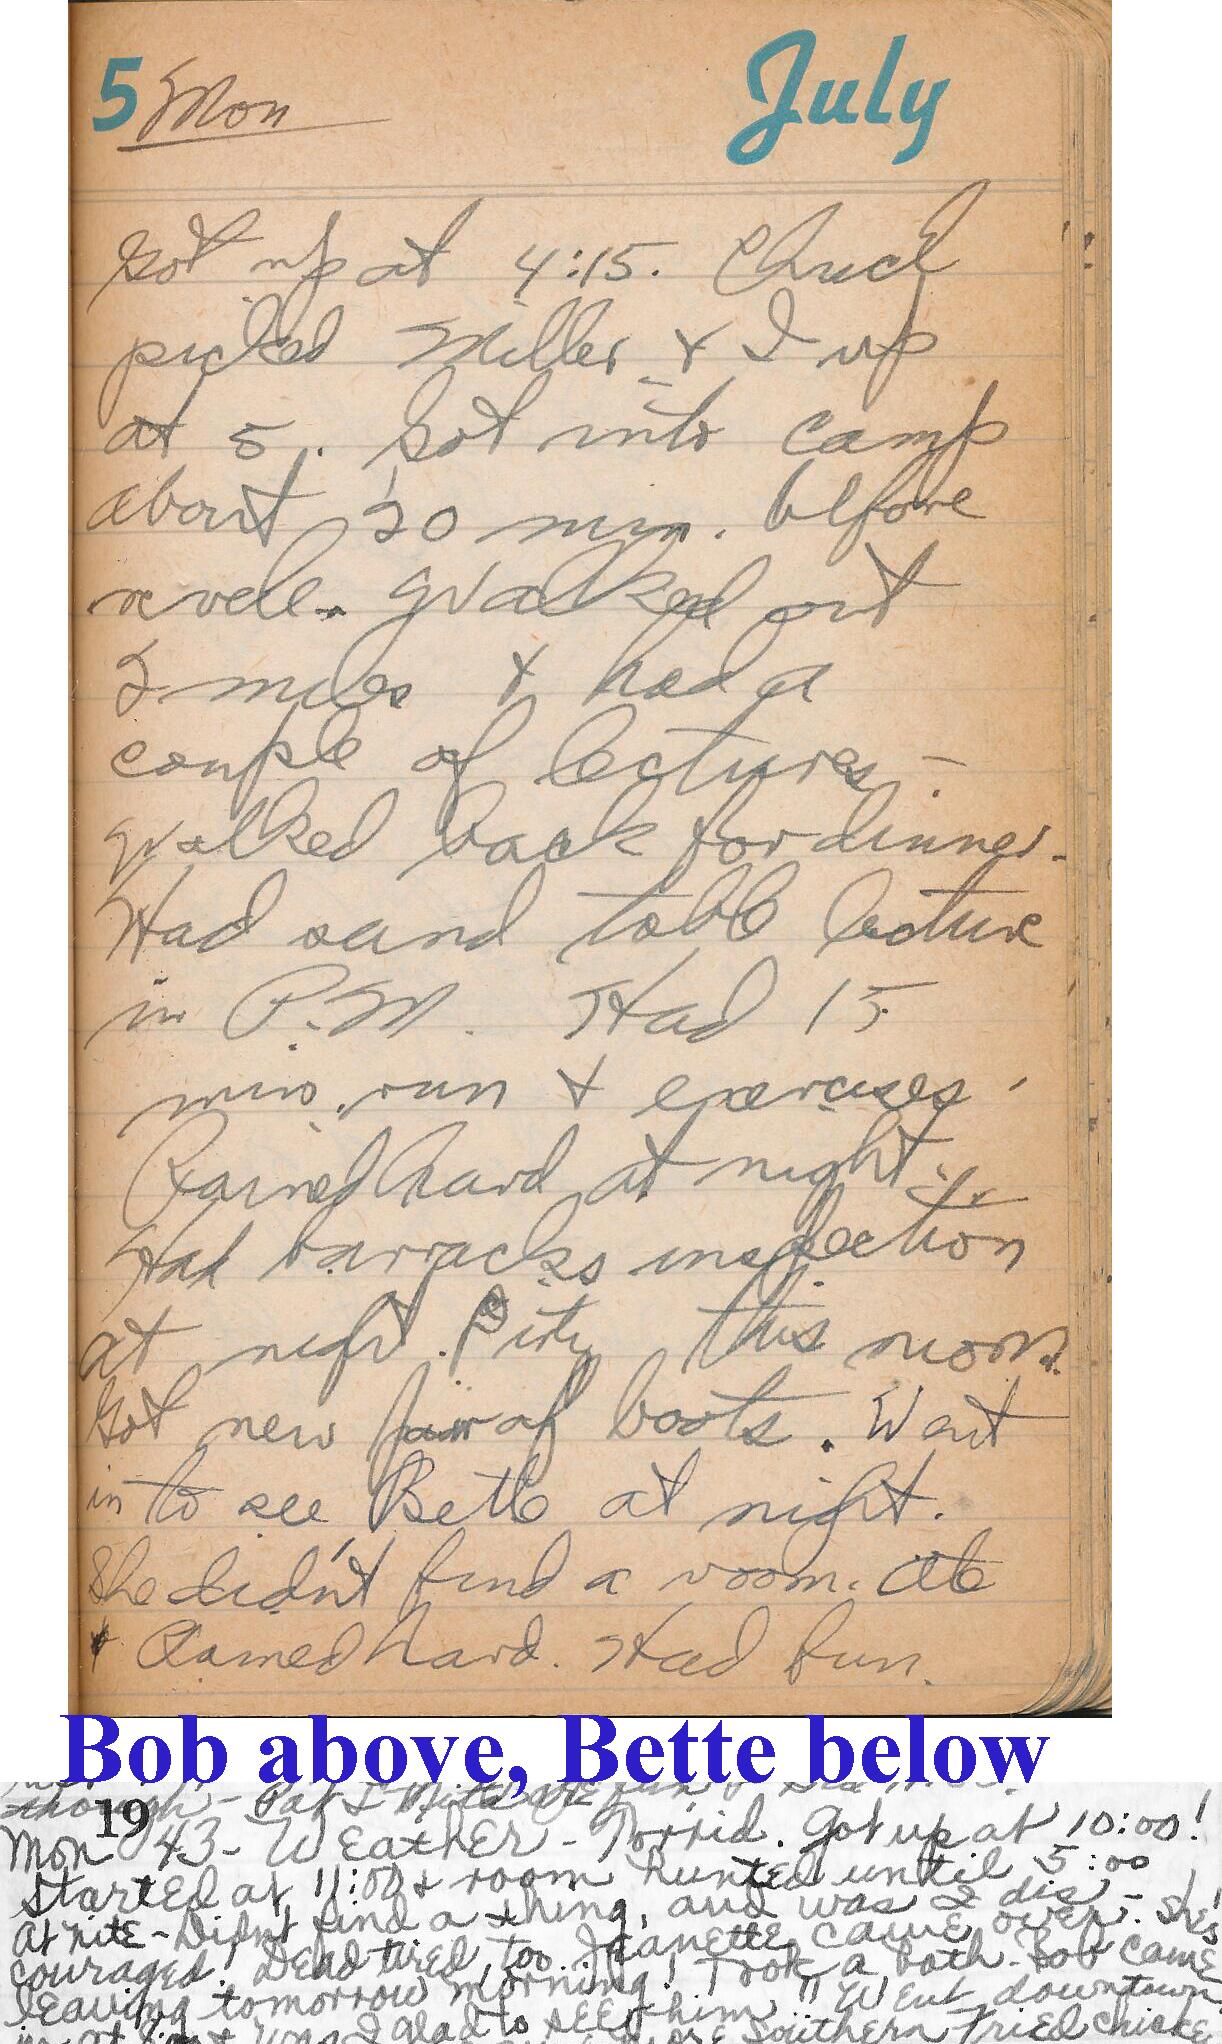 5 Mon July
Got up at 4:15. Chuck
picked Miller & I up
at 5. Got into camp
about 20 min. before
revele. Walked out
2 miles & had a
couple of lectures -
Walked back for dinner.
Had sand table lecture
in P.M. Had 15
min. run & exercises.
Rained hard at night.
Had barracks inspection
at night. this noon.
Got new pair of boots. Went
in to see Bette at night.
She didn't find a room. Ate
& hard. Had fun.
Bob above, Bette below
though -
Mon 1943 - WEather - Torrid. Got up at 10:00!
StartEd at 11:00 & room hunted until 5:00
at nitE - Didn't find a thing, and was I dis-
couraged! DEad tirEd, too. JEanettE camE over. ShE's
lEaving tomorrow morning! Took a bath - Bob camE
in at & was I glad to sEE him!! WEnt downtown
SouthErn friEd